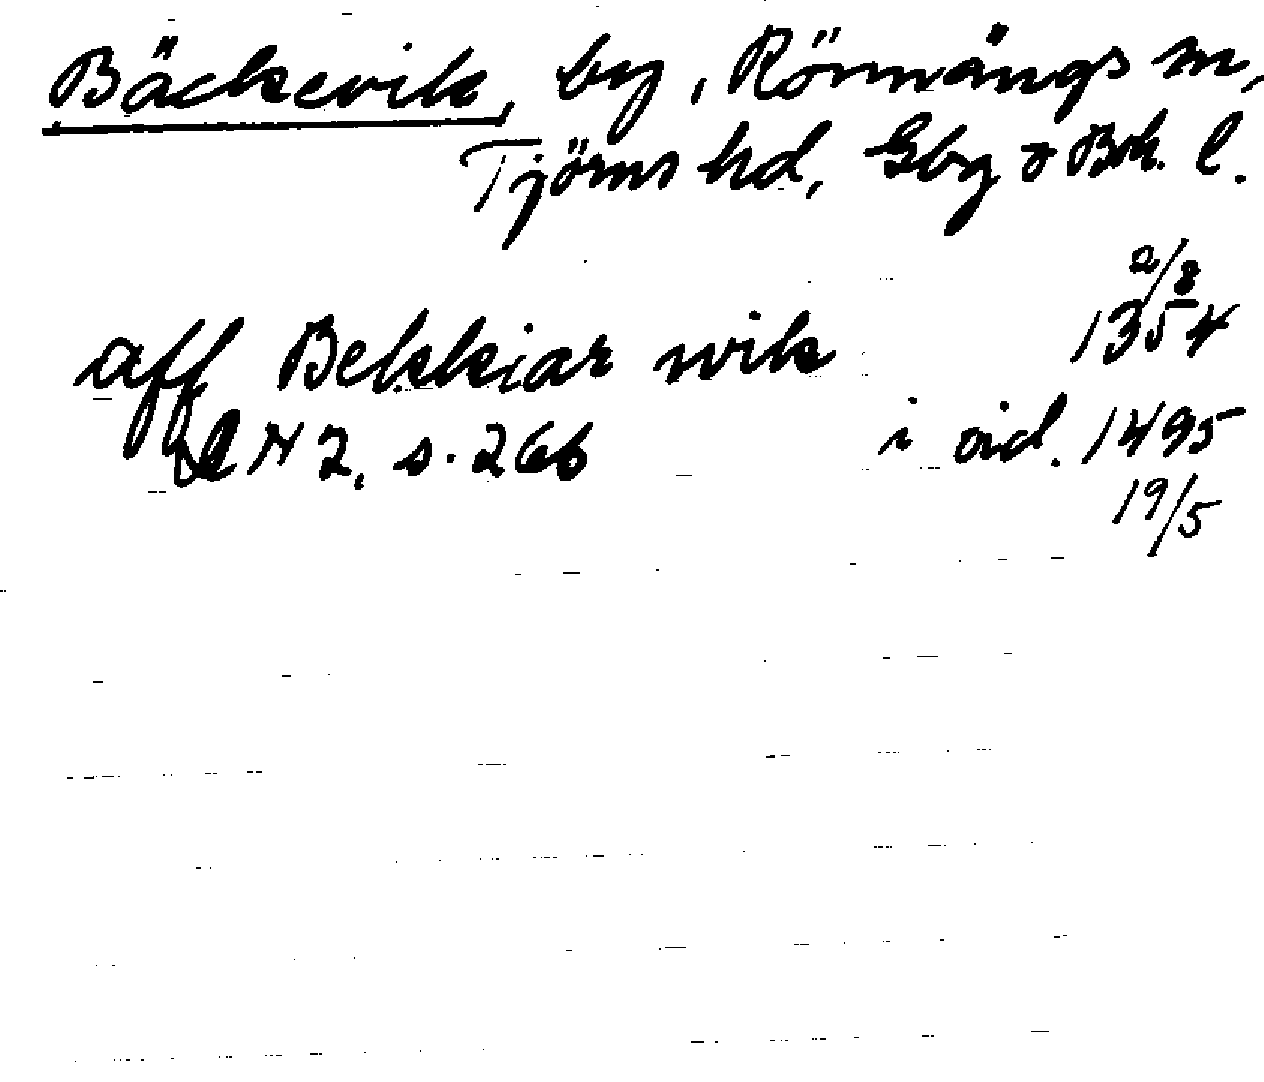 Bäckevik, by, Rönnängs sn,
Tjörns hd, Gbg o Boh. l.
aff Bekkiar wik 2/8 1354
DN 2, s. 266 i vid. 1495
19/5